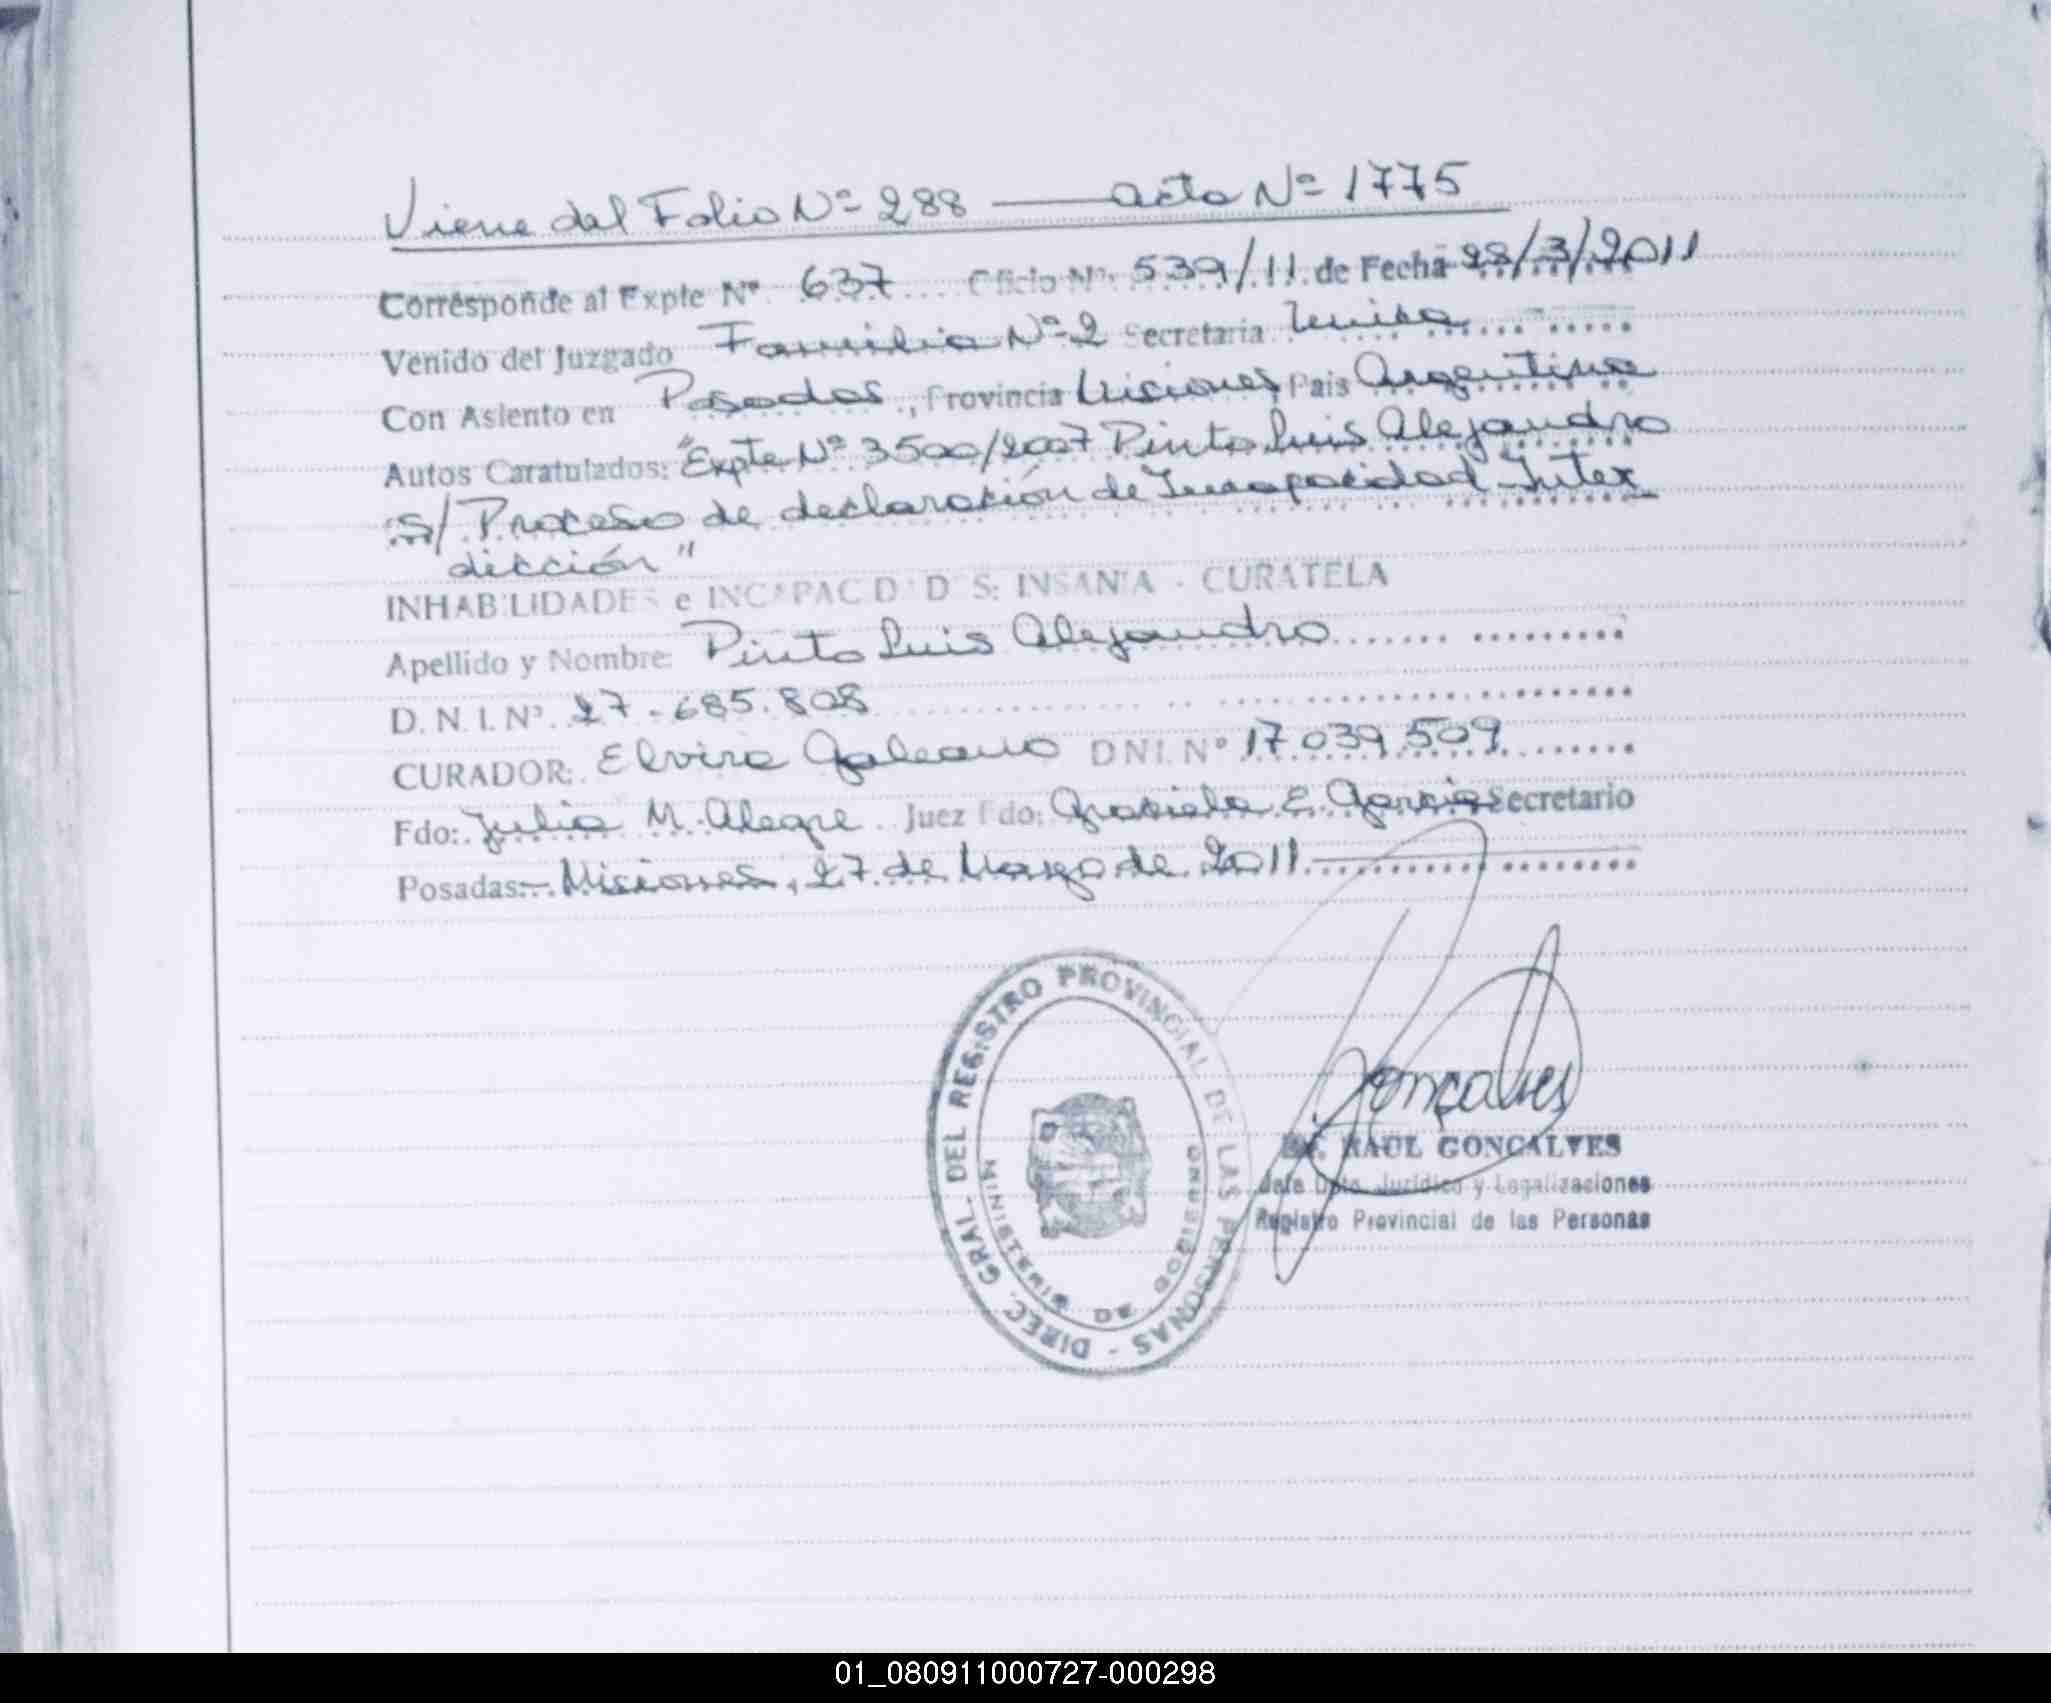 Viene del Folio Nº 288 — Acta Nº 1775
Corresponde al Expte Nº 637 Oficio Nº 539/11 de Fecha 28/3/2011
Venido del Juzgado Familia Nº 2 Secretaria Unica
Con Asiento en Posadas, Provincia Misiones, Pais Argentina
Autos Caratulados: "Expte Nº 3500/2007 Pinto Luis Alejandro
s/ Proceso de declaración de Incapacidad - Inter
dicción"
INHABILIDADES e INCAPACIDADES: INSANIA - CURATELA
Apellido y Nombre: Pinto Luis Alejandro
D. N. I. Nº 27.685.808
CURADOR: Elvira Galeano DNI. Nº 17.039.509
Fdo: Julia M. Alegre Juez Fdo: Graciela E. Garcia Secretario
Posadas - Misiones, 27 de Marzo de 2011
DIREC. GRAL. DEL REGISTRO PROVINCIAL DE LAS PERSONAS -
MINISTERIO DE GOBIERNO
Gonçalves
Dr. RAUL GONCALVES
Jefe Dpto. Juridico y Legalizaciones
Registro Provincial de las Personas
01_080911000727-000298